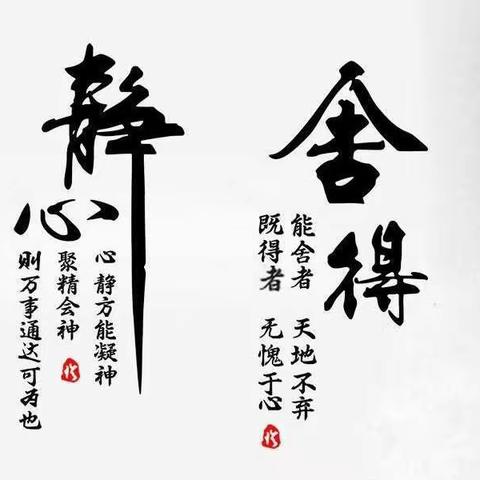 舍得
能舍者 天地不弃
既得者 无愧于心
静心
心静方能凝神
聚精会神
则万事通这可为也